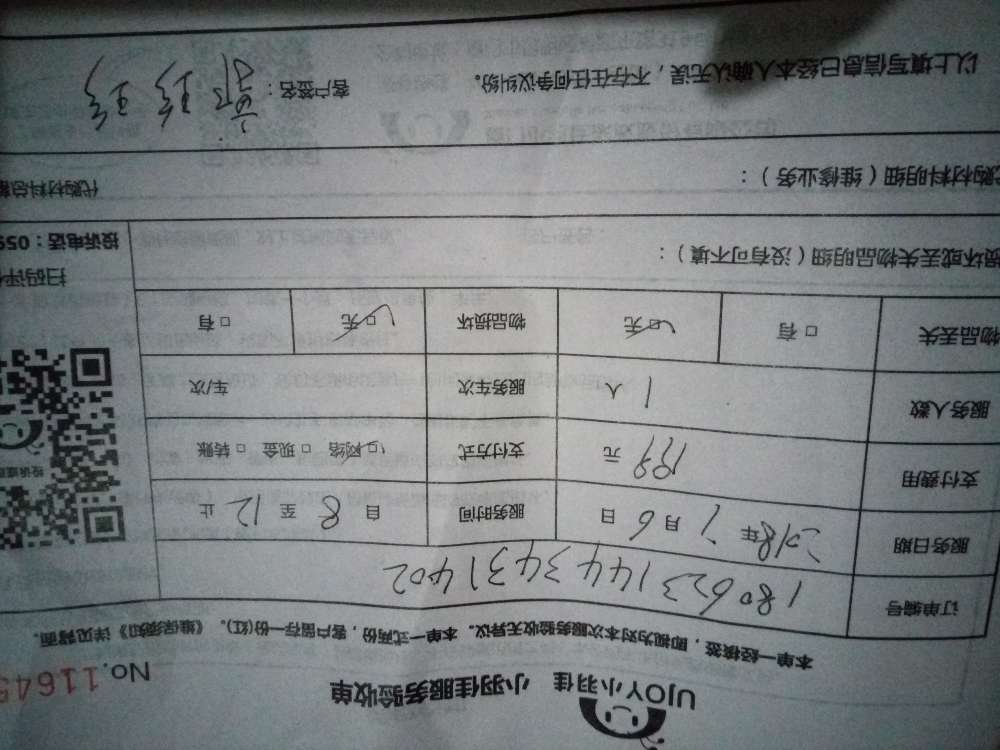 UJOY小羽佳 小羽佳服务验收单
No.11645
本单一经核签，即视为对本次服务验收无异议。本单一式两份，客户留存一份(红)。《维保须知》详见背面。
订单编号 1806231443431402
服务日期 2018年7月6日 服务时间 自8至12止
支付费用 199元 支付方式 ☑网络 □现金 □转账
服务人数 1人 服务车次 车/次
物品丢失 □有 ☑无 物品损坏 ☑无 □有
损坏或丢失物品明细（没有可不填）：
扫码评
投诉电话：059
代购材料明细（维修业务）： 代购材料总
以上填写信息已经本人确认无误，不存在任何争议纠纷。 客户签名：